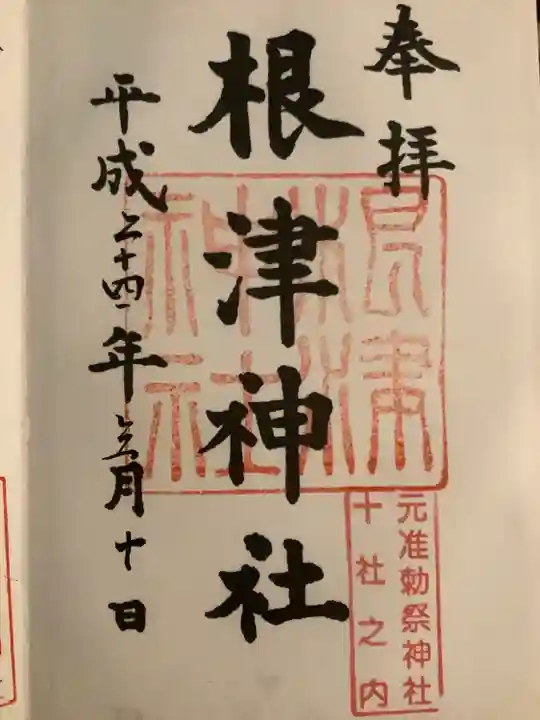 奉拝
根津神社
根津神社
元准勅祭神社
十社之内
平成二十四年
月十日